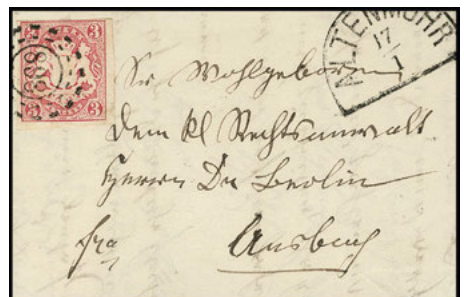 3 3
3 3
ALTENMUHR
17
1
Sr Wohlgeboren
dem kl Rechtsanwalt
Herrn Dr Berlin
fro
Ansbach